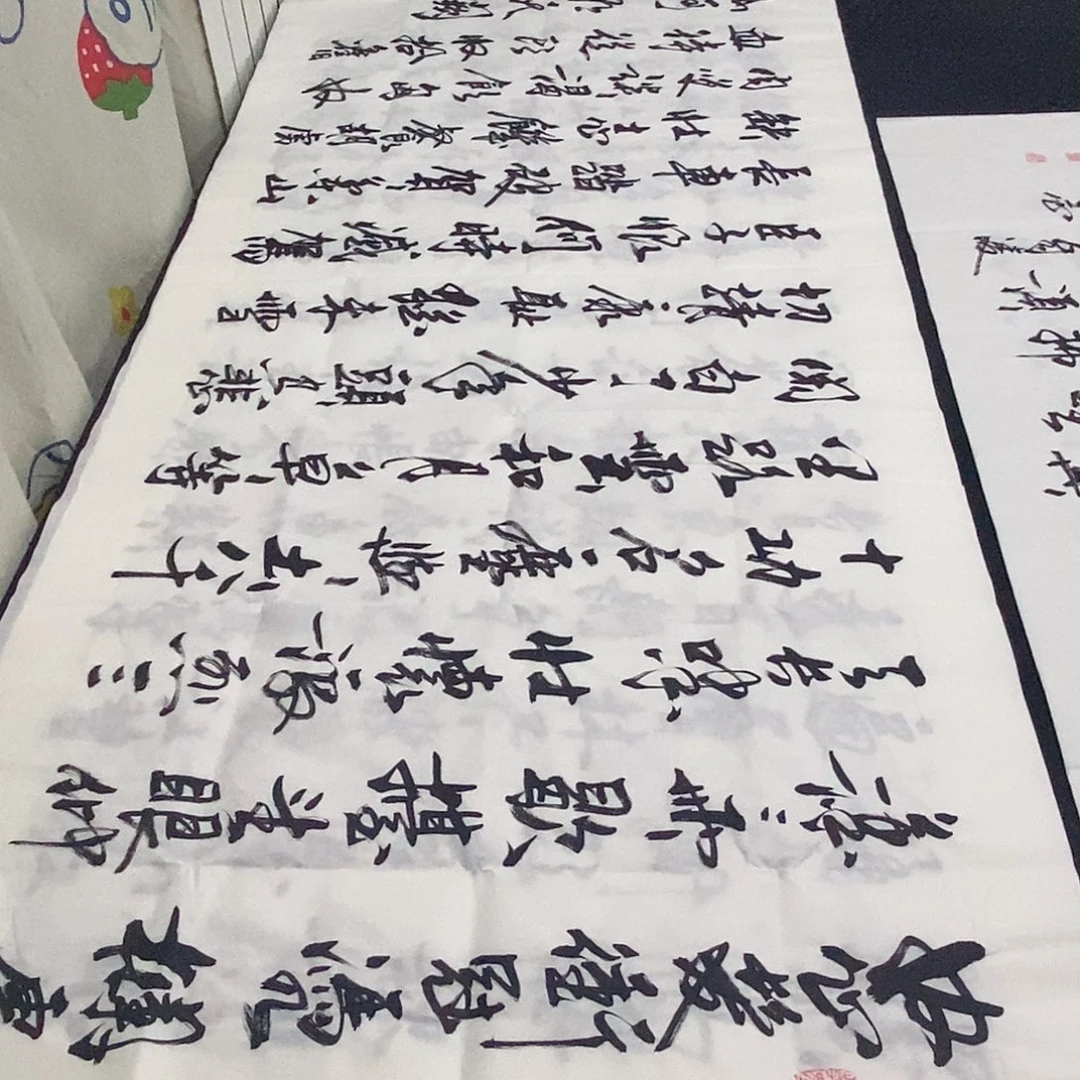 怒髮衝冠憑欄處
瀟瀟雨歇擡望眼仰
天長嘯壯懷激烈三
十功名塵與土八千
里路雲和月莫等
閒白了少年頭空悲
切靖康恥猶未雪
臣子恨何時滅駕
長車踏破賀蘭山
缺壯志飢餐胡虜
肉笑談渴飲匈奴
血待從頭收拾舊
山河朝天闕